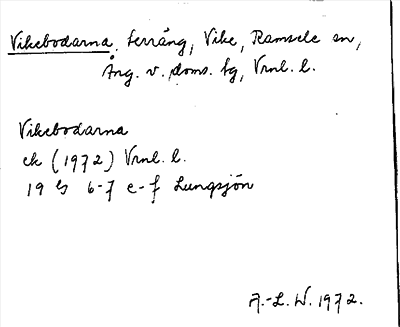 Vikebodarna, terräng, Vike, Ramsele sn,
Ång. v. doms. fg, Vrnl. l.
Vikebodarna
ek (1972) Vrnl. l.
19 G 6-7 e-f Lungsjön
A.-L. W. 1972.